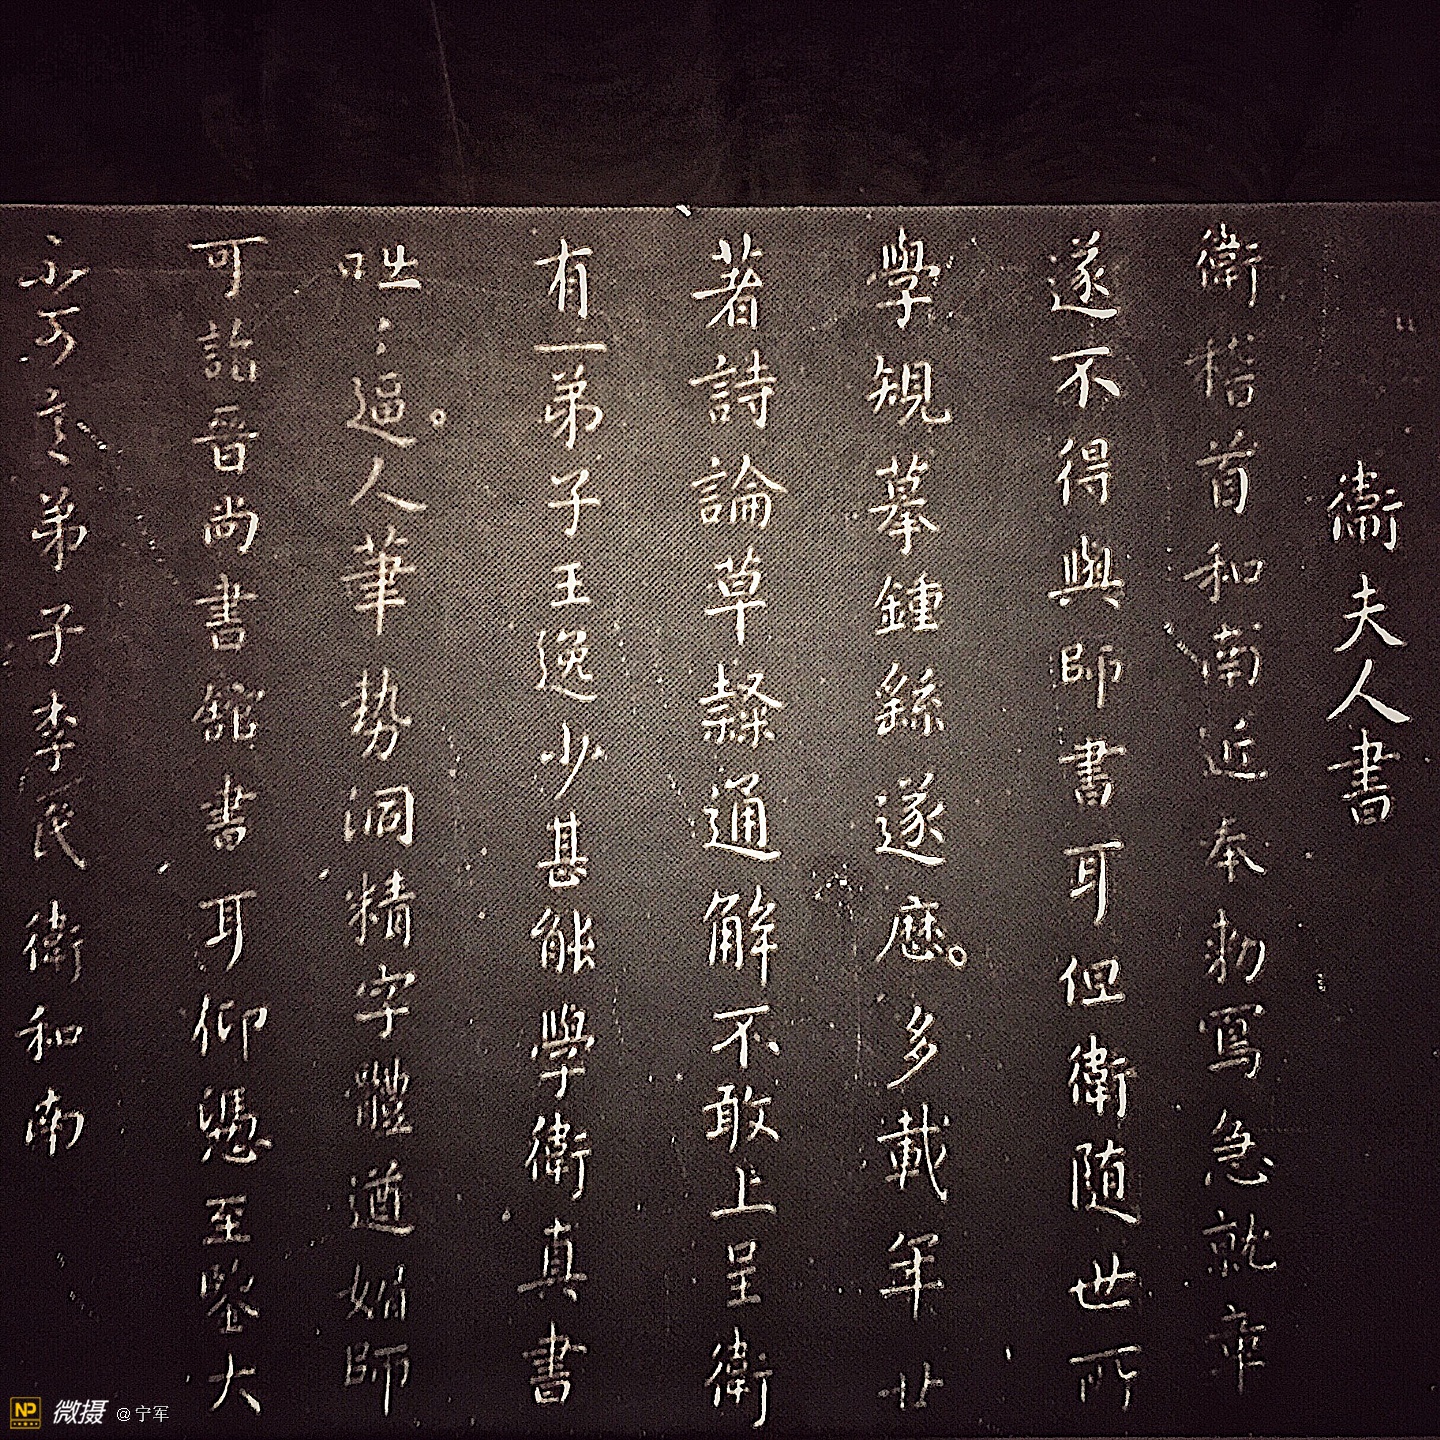 衛夫人書
衛稽首和南近奉勑寫急就章
遂不得與師書耳但衛随世所
學規摹鍾繇遂歷多載年廿
著詩論草隸通解不敢上呈衛
有一弟子王逸少甚能學衛真書
咄〻逼人筆势洞精字體遒媚師
可詣晋尚書舘書耳仰憑至鑒大
不可言弟子李氏衛和南
NP 微摄 @宁军